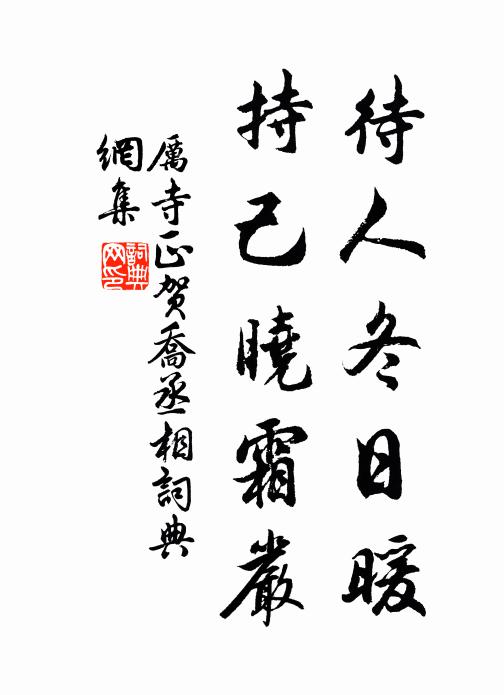 待人冬日暖
持己曉霜嚴
厲寺正賀喬丞相詞典
網集
詞典網印